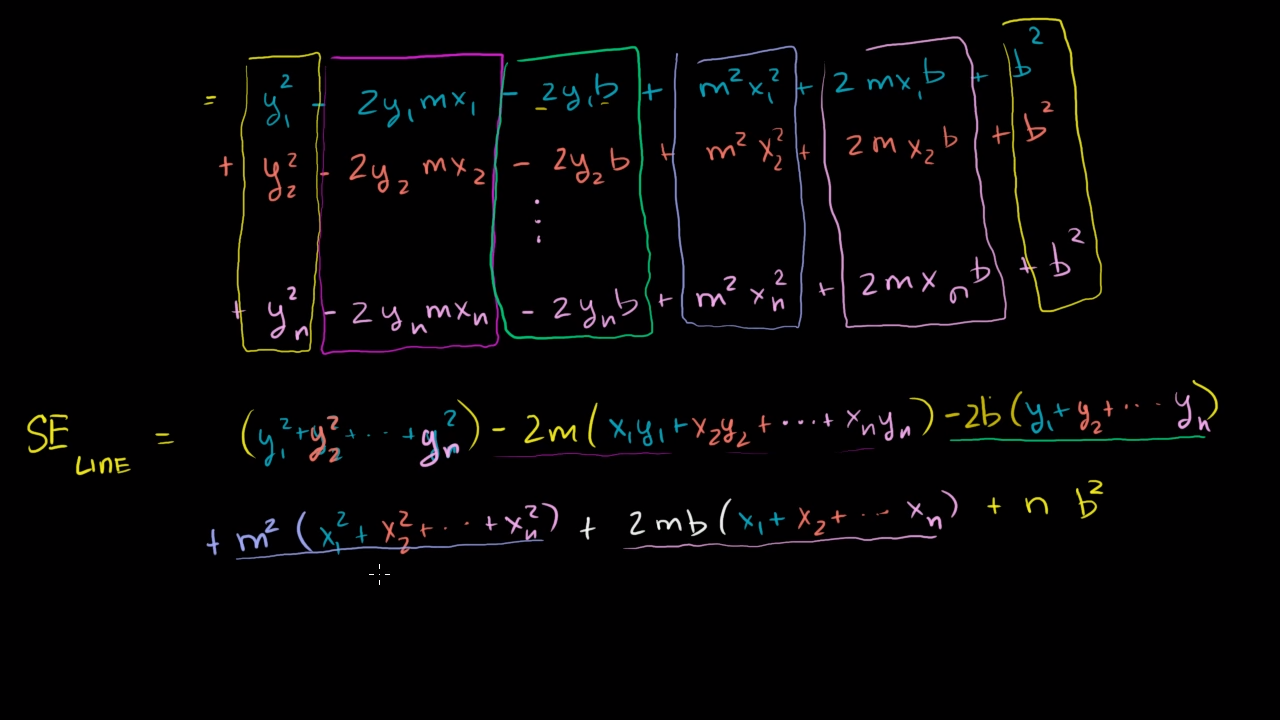 = y₁² - 2y₁mx₁ - 2y₁b + m²x₁² + 2mx₁b + b²
+ y₂² - 2y₂mx₂ - 2y₂b + m²x₂² + 2mx₂b + b²
⋮
+ yₙ² - 2yₙmxₙ - 2yₙb + m²xₙ² + 2mxₙb + b²
SE LINE = (y₁²+y₂²+···+yₙ²) - 2m(x₁y₁+x₂y₂+···+xₙyₙ) -2b(y₁+y₂+··· yₙ)
+ m²(x₁²+x₂²+···+xₙ²) + 2mb(x₁+x₂+··· xₙ) + n b²